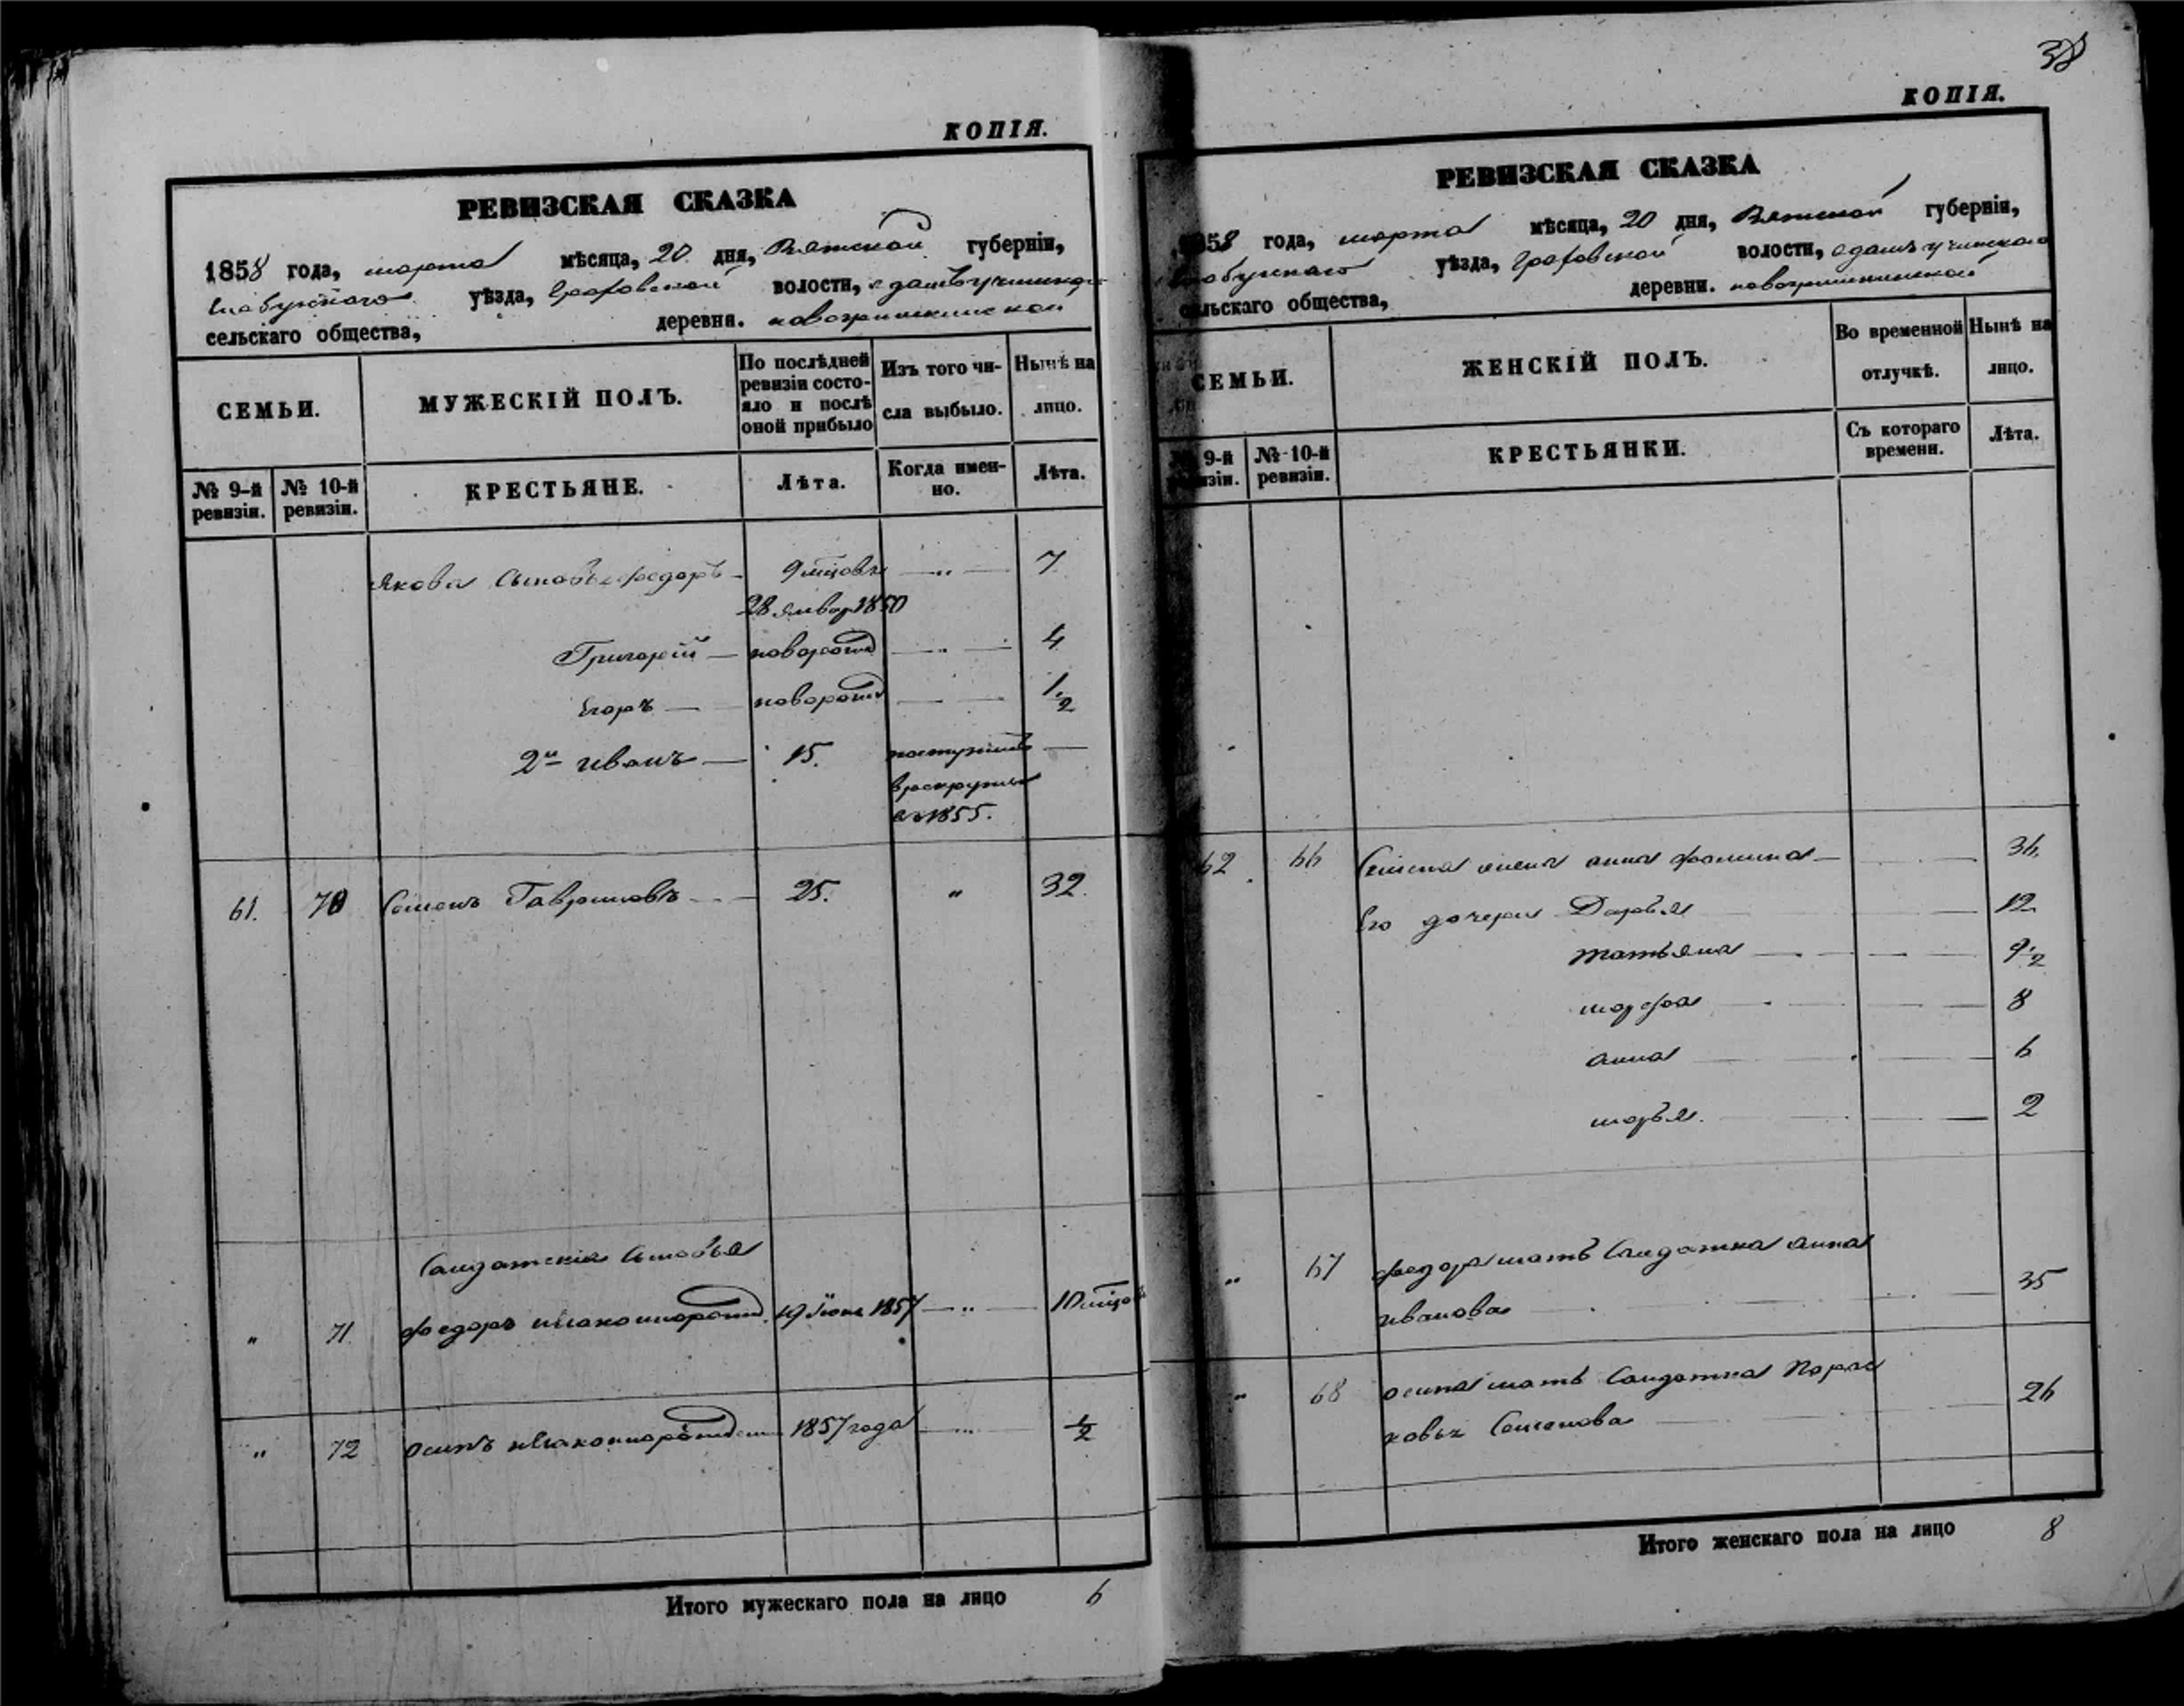 КОПІЯ.
РЕВИЗСКАЯ СКАЗКА
1858 года, марта мѣсяца, 20 дня, Вятской губерніи,
Елабужскаго уѣзда, Граховской волости,
сельскаго общества, деревня. новогришкинской
СЕМЬИ.
МУЖЕСКІЙ ПОЛЪ.
По послѣдней
ревизіи состо-
яло и послѣ
оной прибыло
Изъ того чи-
сла выбыло.
Нынѣ на
лицо.
№ 9-й
ревизіи.
№ 10-й
ревизіи.
КРЕСТЬЯНЕ.
Лѣта.
Когда имен-
но.
Лѣта.
Якова сыновья федоръ 9 мцовъ „ 7
28 Января 1850
Григорій новорожд „ 4
Егоръ новорожд 1 1/2
2й иванъ 15.
поступилъ
въ рекруты
въ 1855.
61. 70 Семенъ Гавриловъ 25. „ 32.
Салдатскіе сыновья
„ 71. федоръ незаконнорожд. 19 Іюня 1857 „ 10 мцовъ
„ 72 осипъ незаконнорожден 1857 года „ 1/2
Итого мужескаго пола на лицо 6
38
КОПІЯ.
РЕВИЗСКАЯ СКАЗКА
1858 года, марта мѣсяца, 20 дня, Вятской губерніи,
Елабужскаго уѣзда, Граховской волости,
сельскаго общества, деревни. новогришкинской
СЕМЬИ.
ЖЕНСКІЙ ПОЛЪ.
Во временной
отлучкѣ.
Нынѣ на
лицо.
№ 9-й
ревизіи.
№ 10-й
ревизіи.
КРЕСТЬЯНКИ.
Съ котораго
времени.
Лѣта.
62 66 Семена жена анна фомина 36.
Его дочери Дарья 12
татьяна 9 1/2
марфа 8
анна 6
марья. 2
„ 67 федора мать Салдатка анна
иванова 35
„ 68 осипа мать Салдатка Парас
ковья Семенова 26
Итого женскаго пола на лицо 8